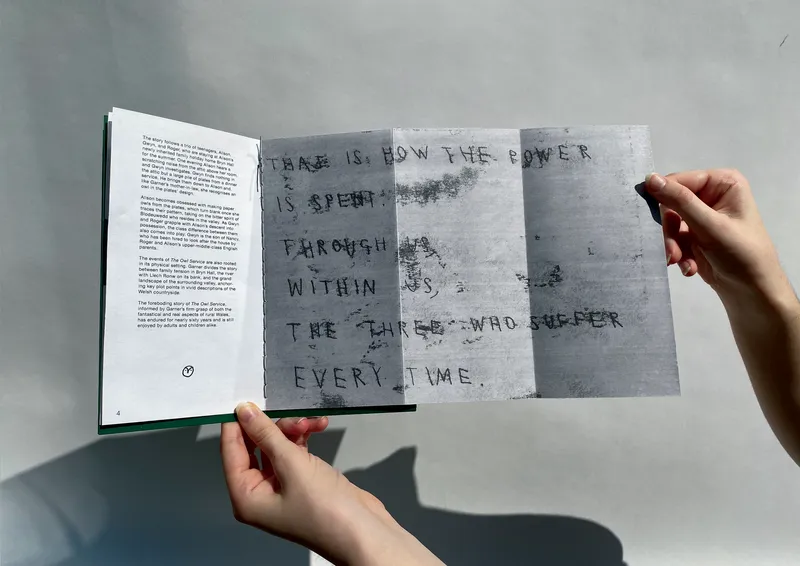 The story follows a trio of teenagers, Alison,
Gwyn, and Roger, who are staying at Alison's
newly inherited family holiday home Bryn Hall
for the summer. One evening Alison hears a
scratching noise from the attic above her room,
and Gwyn investigates. Gwyn finds nothing in
the attic but a large pile of plates from a dinner
service. He brings them down to Alison and
like Garner's mother-in-law, she recognises an
owl in the plates' design.
Alison becomes obsessed with making paper
owls from the plates, which turn blank once she
traces their pattern, taking on the bitter spirit of
Blodeuwedd who resides in the valley. As Gwyn
and Roger grapple with Alison's descent into
possession, the class difference between them
also comes into play. Gwyn is the son of Nancy,
who has been hired to look after the house by
Roger and Alison's upper-middle-class English
parents.
The events of The Owl Service are also rooted
in its physical setting. Garner divides the story
between family tension in Bryn Hall, the river
with Llech Ronw on its bank, and the grand
landscape of the surrounding valley, anchor-
ing key plot points in vivid descriptions of the
Welsh countryside.
The foreboding story of The Owl Service,
informed by Garner's firm grasp of both the
fantastical and real aspects of rural Wales,
has endured for nearly sixty years and is still
enjoyed by adults and children alike.
4
THAT IS HOW THE POWER
IS SPENT:
THROUGH US,
WITHIN US,
THE THREE WHO SUFFER
EVERY TIME.